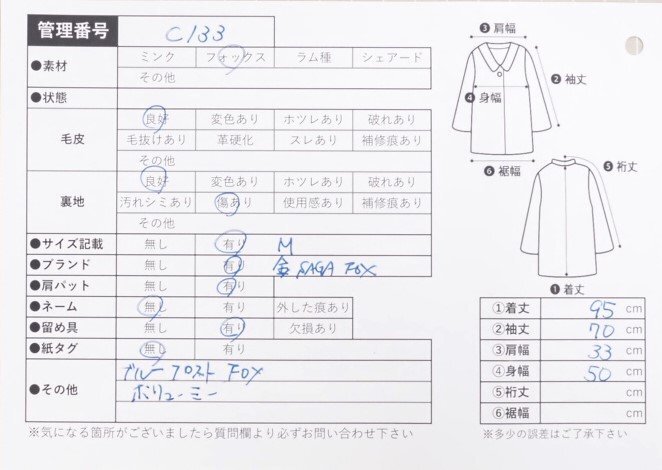 管理番号 C133
●素材 ミンク フォックス ラム種 シェアード
その他
●状態
毛皮 良好 変色あり ホツレあり 破れあり
毛抜けあり 革硬化 スレあり 補修痕あり
その他
裏地 良好 変色あり ホツレあり 破れあり
汚れシミあり 傷あり 使用感あり 補修痕あり
その他
●サイズ記載 無し 有り M
●ブランド 無し 有り 金 SAGA FOX
●肩パット 無し 有り
●ネーム 無し 有り 外した痕あり
●留め具 無し 有り 欠損あり
●紙タグ 無し 有り
●その他 ブルーフロスト FOX
ボリューミー
※気になる箇所がございましたら質問欄より必ずお問い合わせ下さい
❸肩幅
❷袖丈
❹身幅
❻裾幅
❺裄丈
❶着丈
①着丈 95 cm
②袖丈 70 cm
③肩幅 33 cm
④身幅 50 cm
⑤裄丈 cm
⑥裾幅 cm
※多少の誤差はご了承下さい